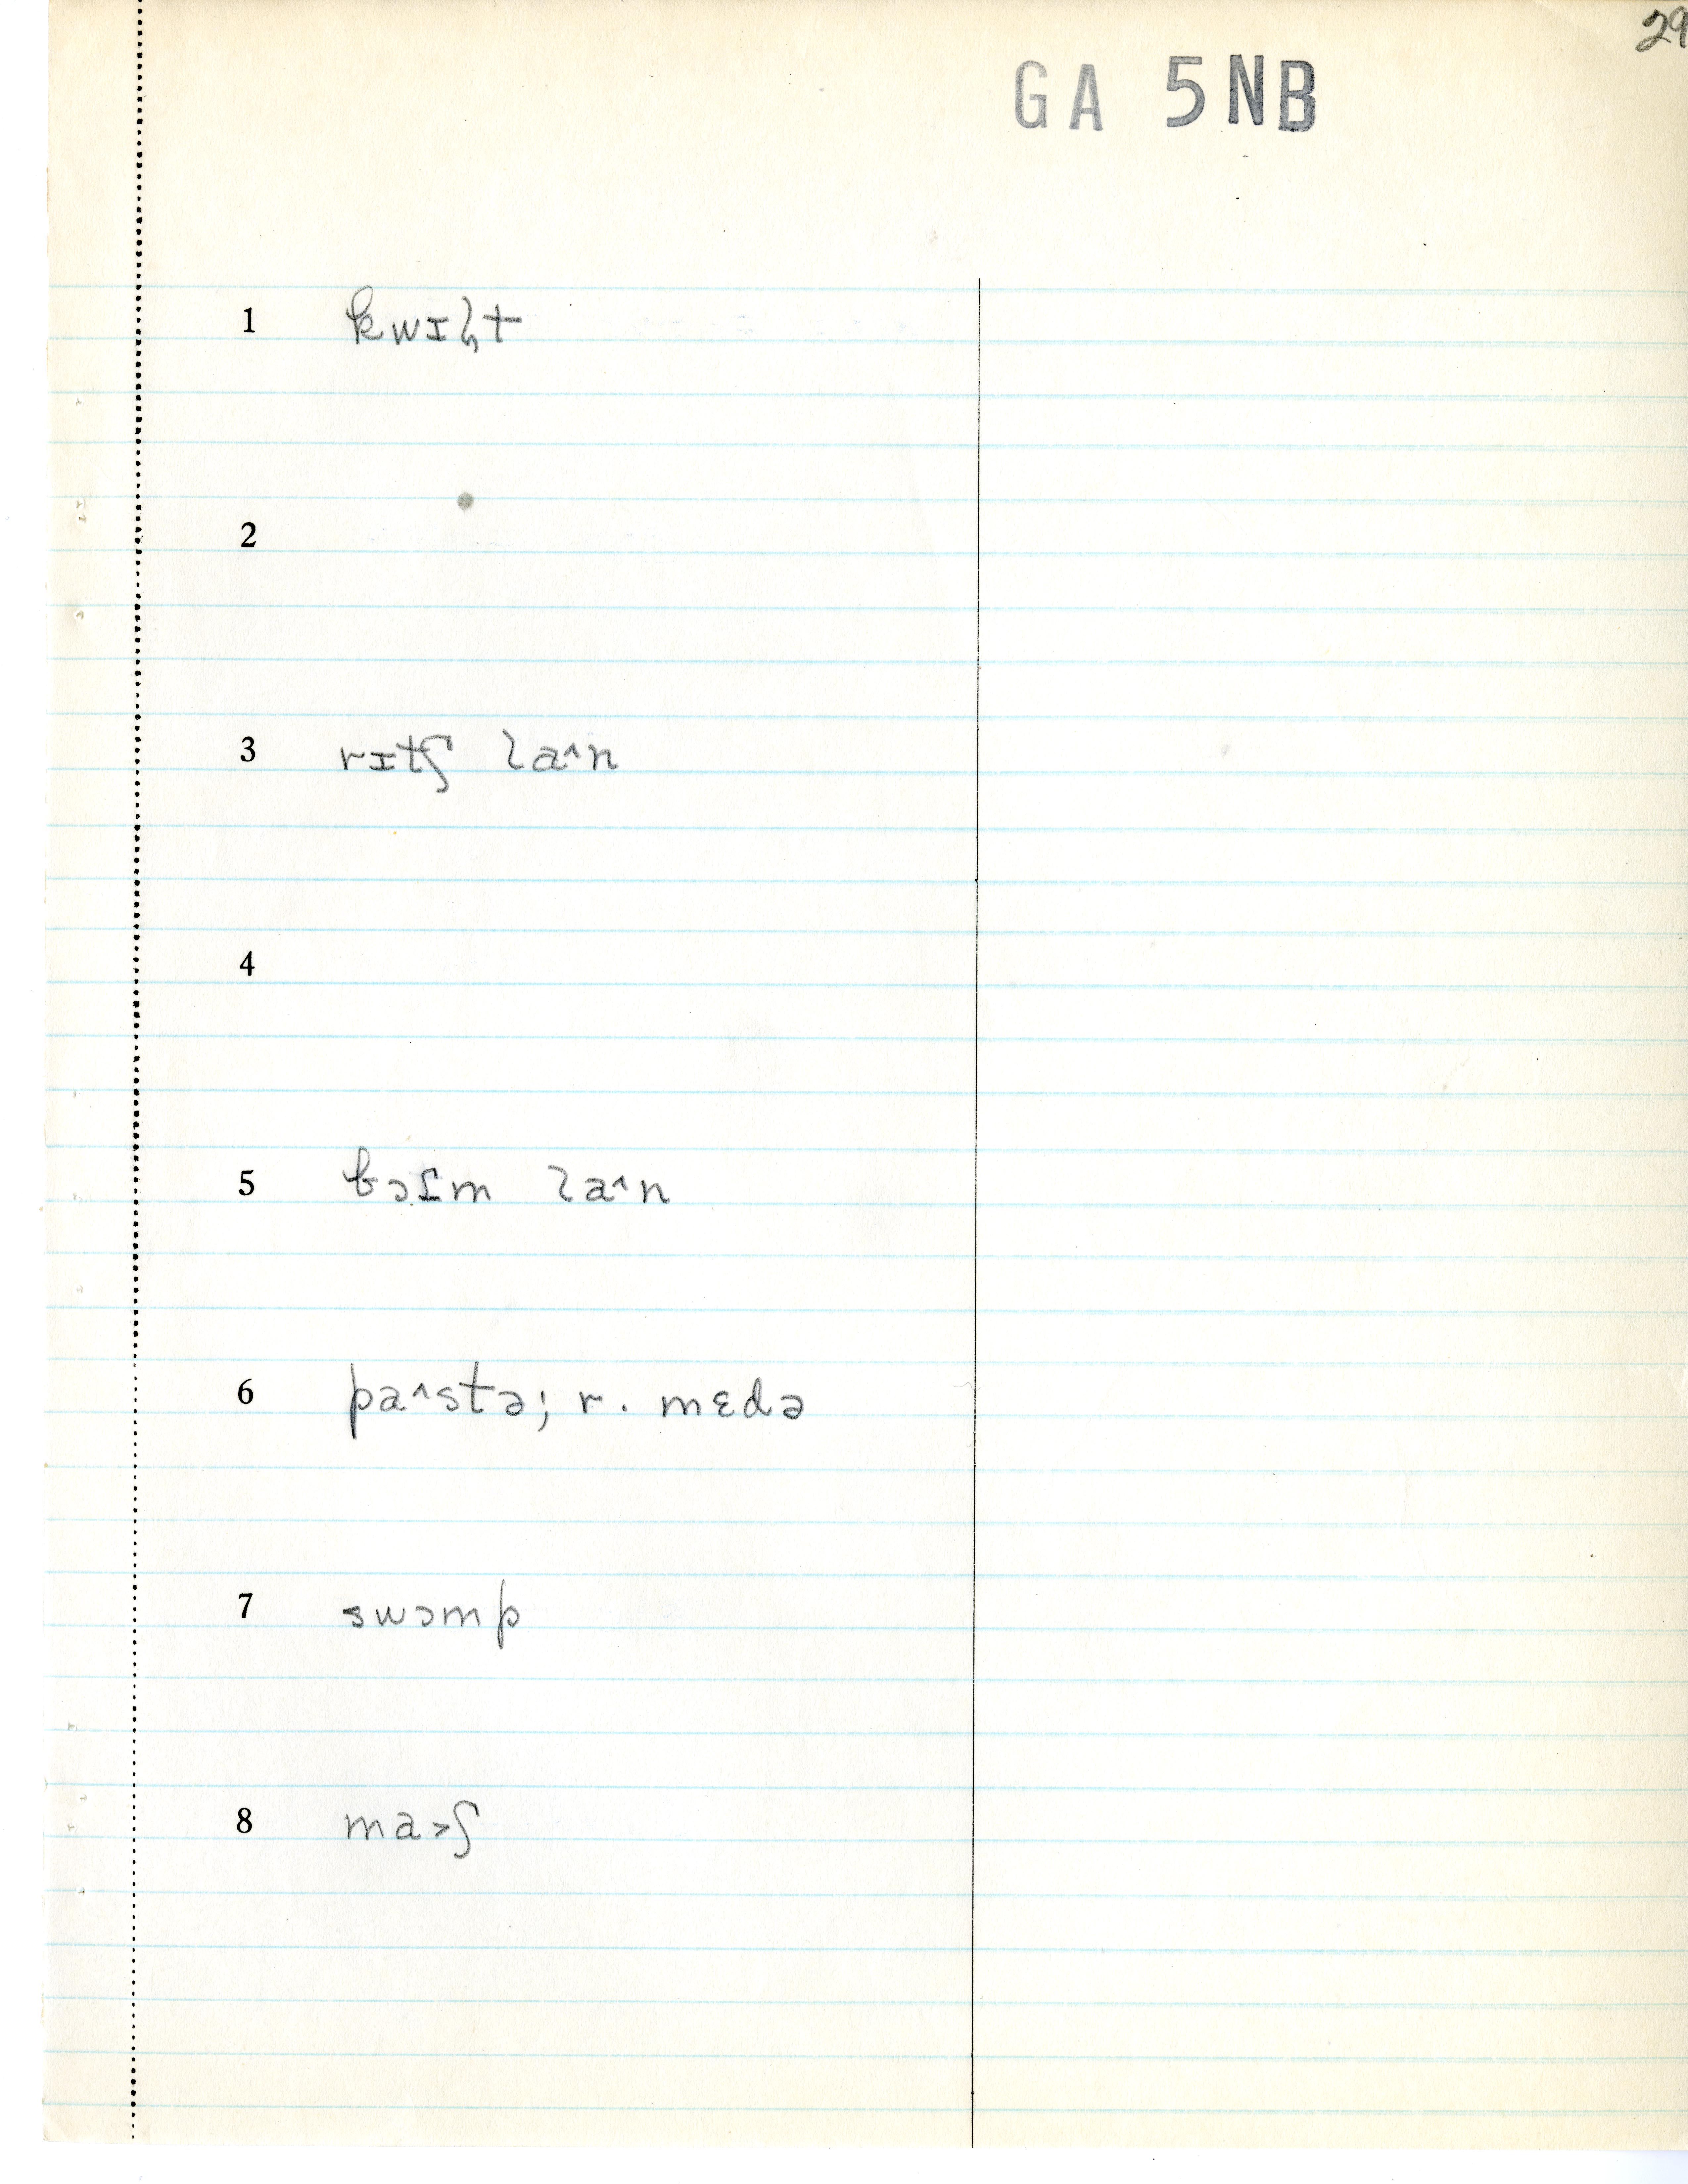 29
GA 5NB
1 kwɪl̡t
2
3 rɪtʃ la^n
4
5 bɔɪm la^n
6 pa^stə; r. mɛdə
7 swɔmp
8 ma>ʃ